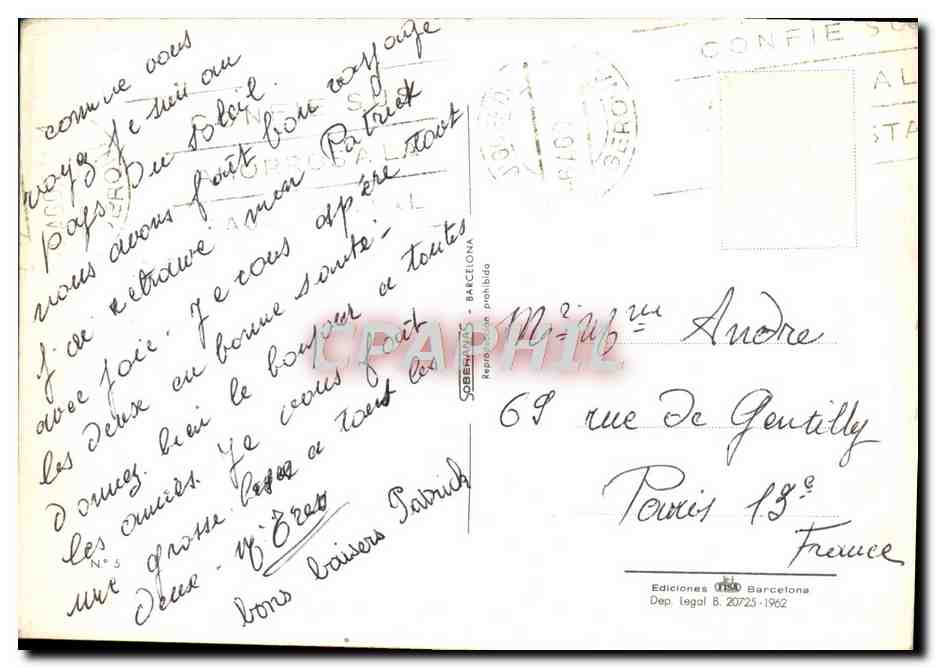 comme vous
voyez Je suis au
pays du soleil.
nous avons fait bon voyage
J'ai retrouvé mon Patrick
avec joie. Je vous espère tout
les deux en bonne santé -
Donnez bien le bonjour a toutes
les amies. Je vous fait
une grosse bise a tout les
deux -
bons baisers Patrick
N° 5
CONFIE SUS
AHORROS A LA
POSTAL
SOBERANAS - BARCELONA
Reproducción prohibida
CPAPHIL
CONFIE SUS
A LA
Mr. Mme Andre
69 rue de Gentilly
Paris 13e
France
Ediciones FISA Barcelona
Dep. Legal B. 20725-1962